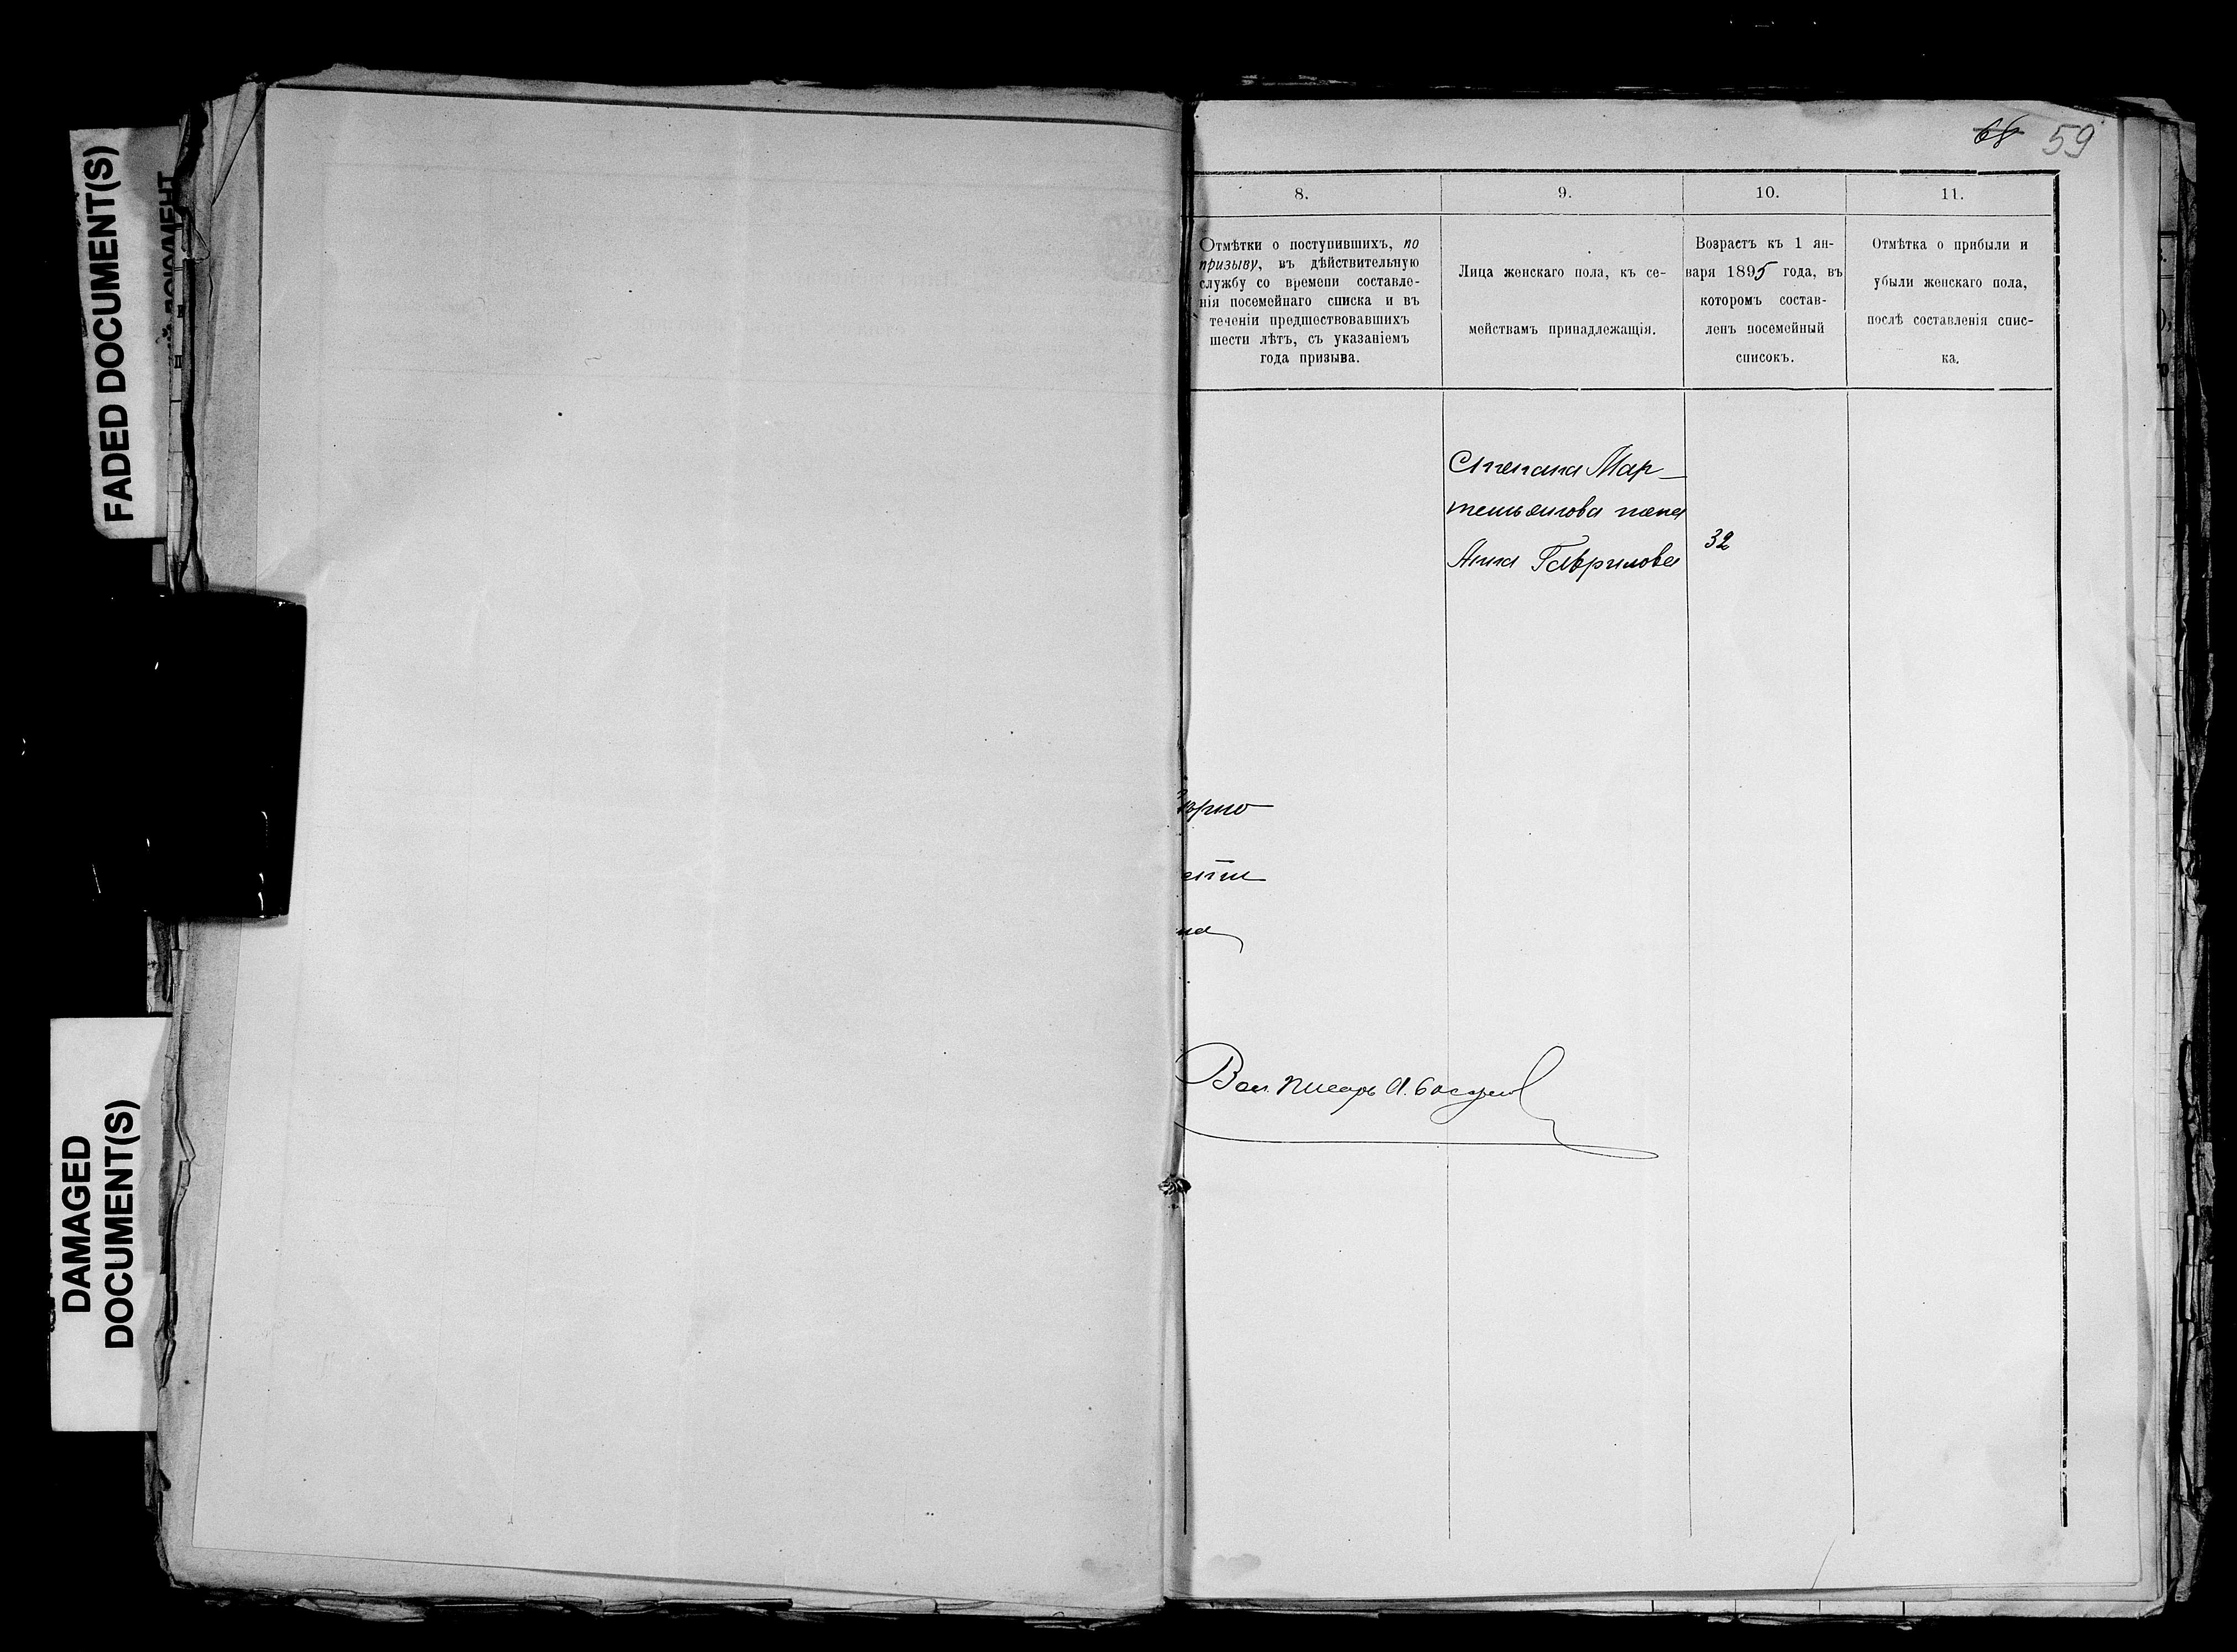 FADED DOCUMENT(S)
DAMAGED
DOCUMENT(S)
68 59
8.
Отмѣтки о поступившихъ, по
призыву, въ дѣйствительную
службу со времени составле-
нія посемейнаго списка и въ
теченіи предшествовавшихъ
шести лѣтъ, съ указаніемъ
года призыва.
9.
Лица женскаго пола, къ се-
мействамъ принадлежащія.
10.
Возрастъ къ 1 ян-
варя 1895 года, въ
которомъ состав-
ленъ посемейный
списокъ.
11.
Отмѣтка о прибыли и
убыли женскаго пола,
послѣ составленія спис-
ка.
Степана Мар-
темьянова жена
Анна Гаврилова
32
ѣрно
на
Вол. писарь А.